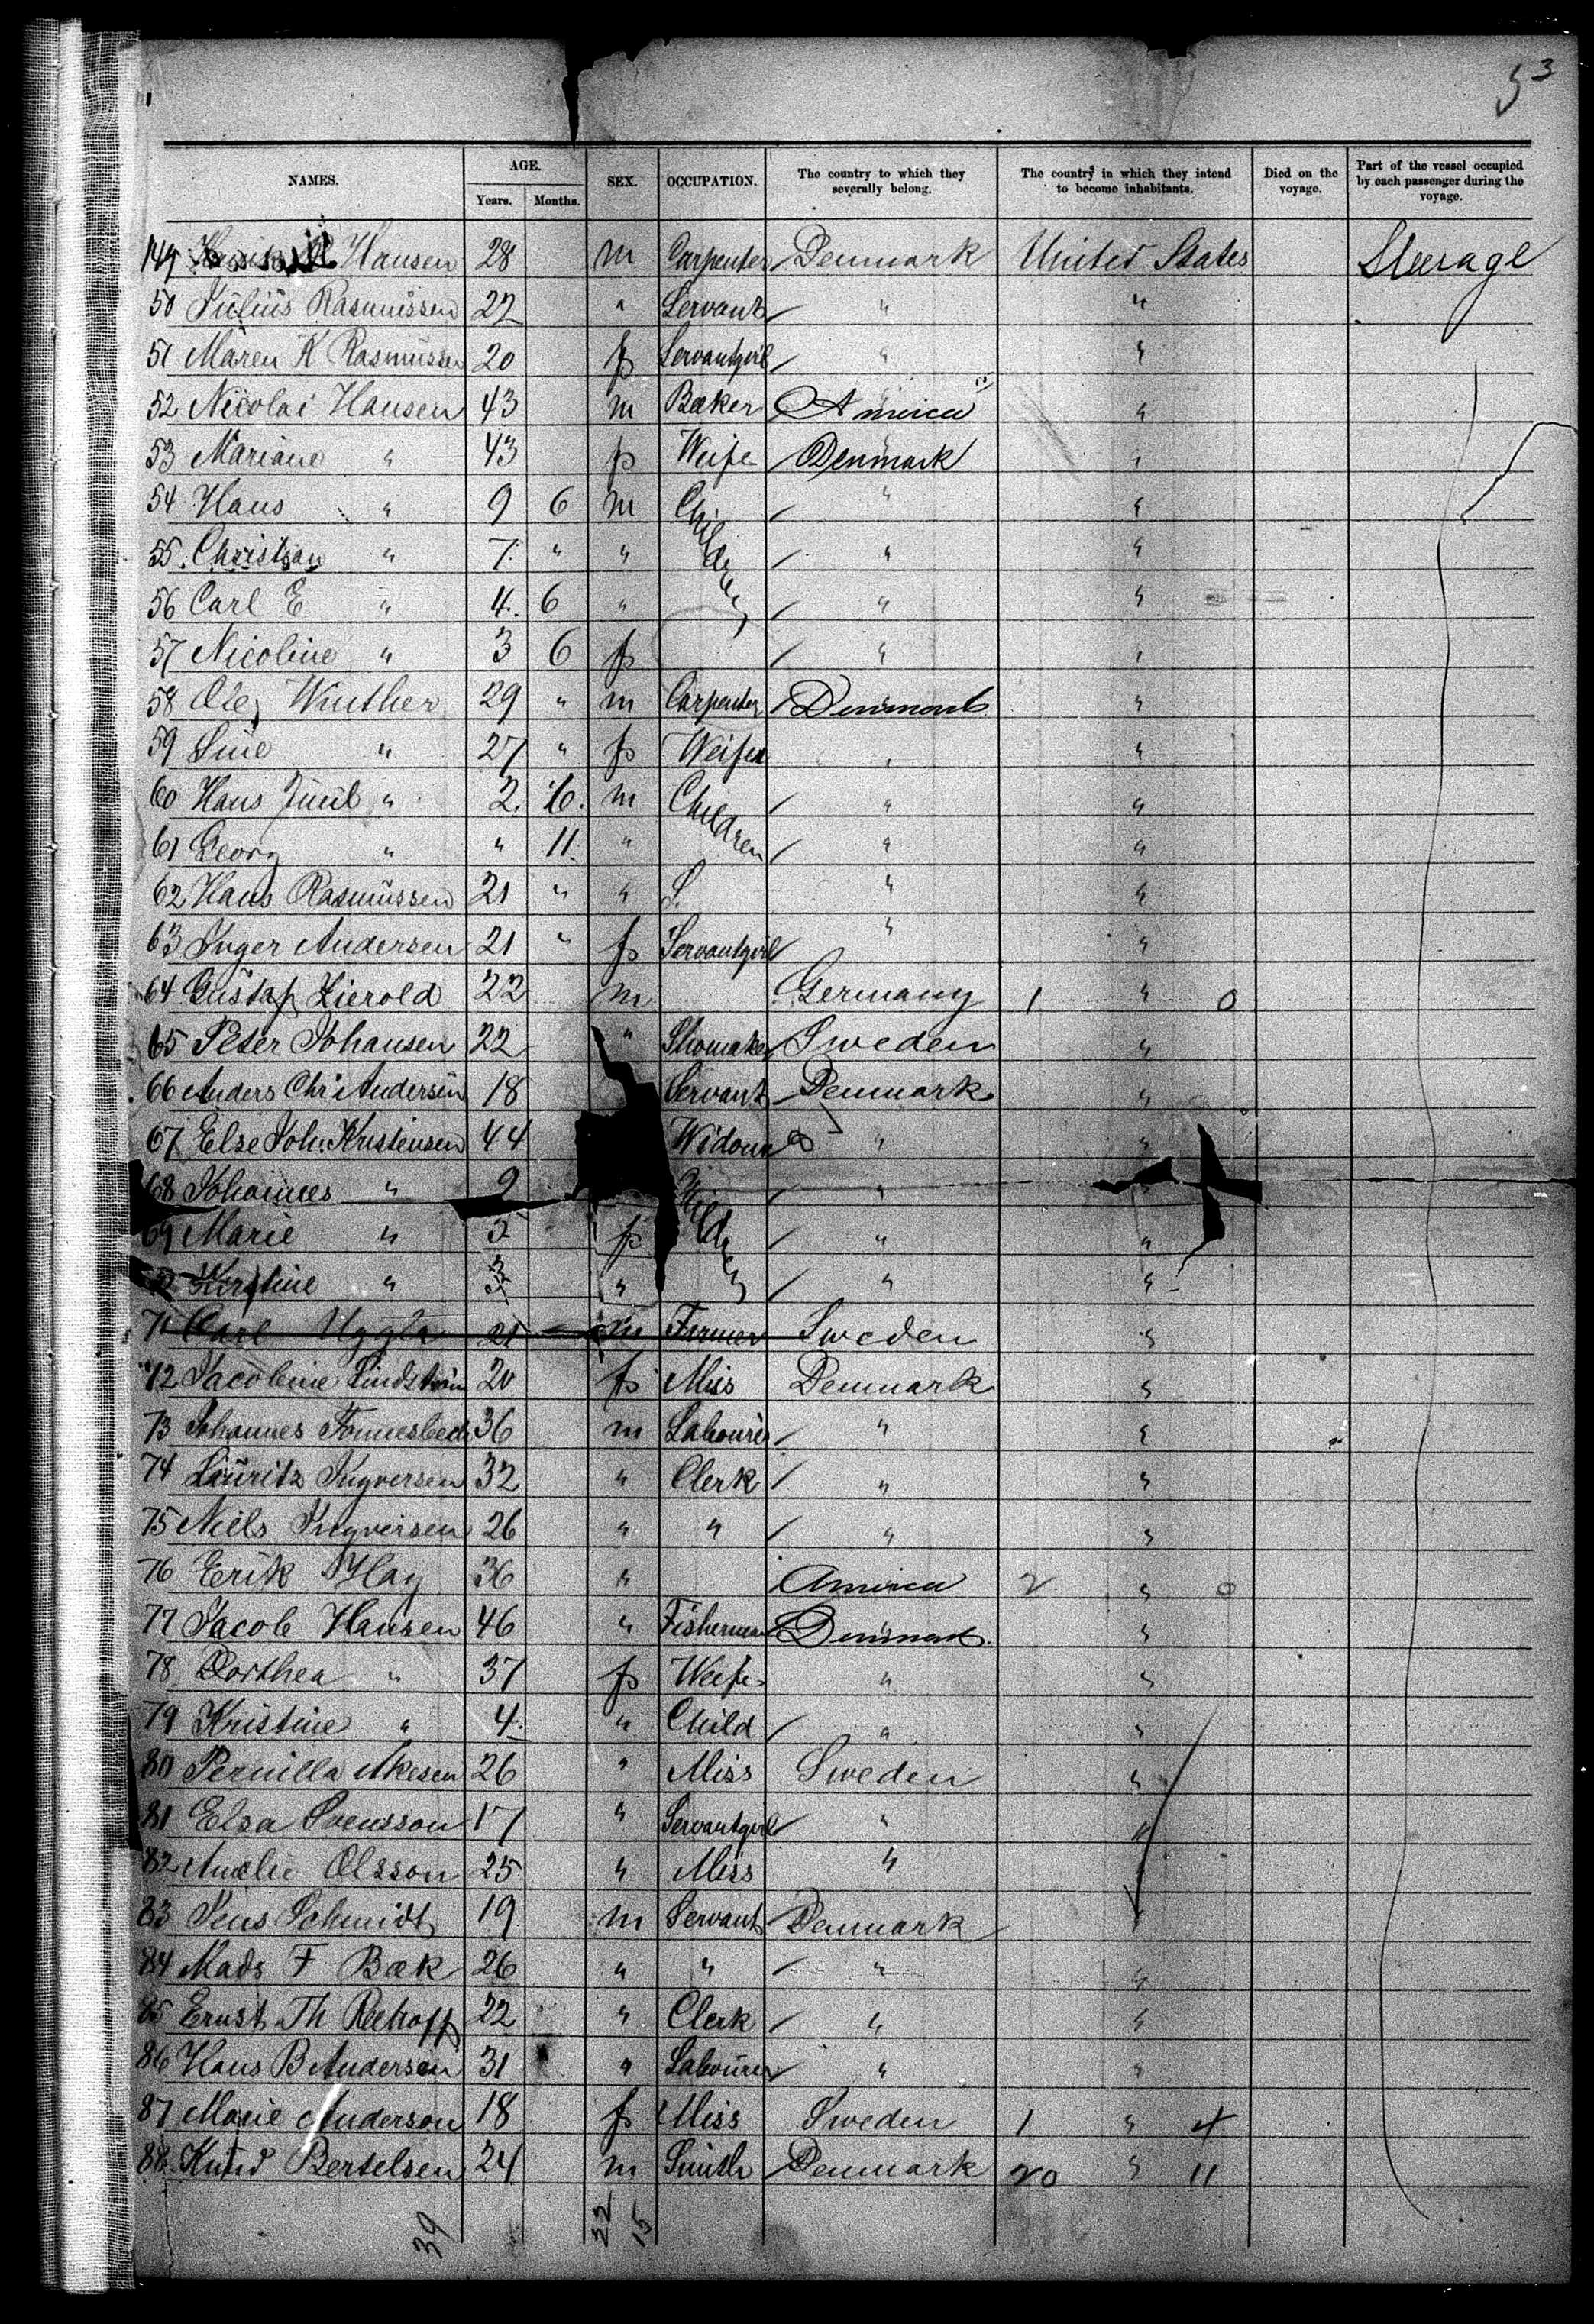 53
NAMES. AGE. Years. Months. SEX. OCCUPATION. The country to which they severally belong. The country in which they intend to become inhabitants. Died on the voyage. Part of the vessel occupied by each passenger during the voyage.
149 Hansen 28 m Carpenter Denmark United States Steerage
50 Julius Rasmussen 22 " Servant " "
51 Maren K Rasmussen 20 f Servantgirl " "
52 Nicolai Hansen 43 m Baker America "
53 Mariane " 43 f Weife Denmark "
54 Hans " 9 6 m Children " "
55 Christian " 7 " " " "
56 Carl E " 4 6 " " "
57 Nicoline " 3 6 f " "
58 Ole Winther 29 " m Carpenter Denmark "
59 Sine " 27 " f Weife " "
60 Hans Juul " 2 6 m Children " "
61 Georg " " 11 " " "
62 Hans Rasmussen 21 " " S. " "
63 Inger Andersen 21 " f Servantgirl " "
64 Gustaf Lierold 22 m Germany 1 " 0
65 Peter Johansen 22 " Shomaker Sweden "
66 Anders Chr Andersen 18 Servant Denmark "
67 Else Joh. Kristensen 44 Widow " "
68 Johannes " 9 Children " "
69 Marie " 5 f " "
Kirstine " 3 " " "
71 Carl Uggla 21 m Farmer Sweden "
72 Jacobine Lindstrøm 20 f Miss Denmark "
73 Johannes Fonnesbech 36 m Labourer " "
74 Lauritz Ingversen 32 " Clerk " "
75 Niels Ingversen 26 " " " "
76 Erik Hay 36 " America 2 " 0
77 Jacob Hansen 46 " Fisherman Denmark "
78 Dorthea " 37 f Weife " "
79 Kristine " 4 " Child " "
80 Pernilla Akesen 26 " Miss Sweden "
81 Elsa Svensson 17 " Servantgirl " "
82 Amalie Olsson 25 " Miss " "
83 Jens Schmidt 19 m Servant Denmark "
84 Mads F Bæk 26 " " " "
85 Ernst Th Reehoff 22 " Clerk " "
86 Hans B Andersen 31 " Labourer " "
87 Marie Anderson 18 f Miss Sweden 1 " 4
88 Knud Bertelsen 24 m Smith Denmark 20 " 11
39 22 15